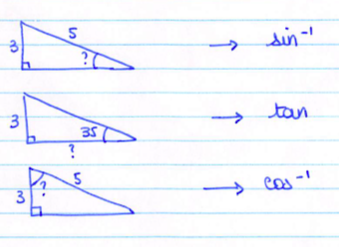 5
3 ? → sin⁻¹
3 35 → tan
?
5
3 ? → cos⁻¹